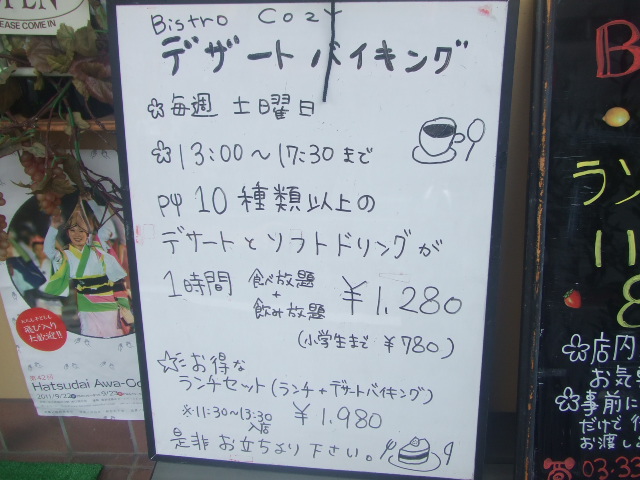 PLEASE COME IN
Bistro Cozy
デザートバイキング
毎週 土曜日
13:00～17:30まで
10種類以上の
デザートとソフトドリングが
1時間 食べ放題
+
飲み放題
¥1,280
(小学生まで ¥780)
お得な
ランチセット(ランチ+デザートバイキング)
※11:30～13:30
入店
¥1,980
是非お立ちより下さい。
飛び入り
大歓迎!!
第42回
Hatsudai Awa-Od
2011/9/22
9/23
B
ラン
店内
お気
事前に
だけで
お渡し
03.33